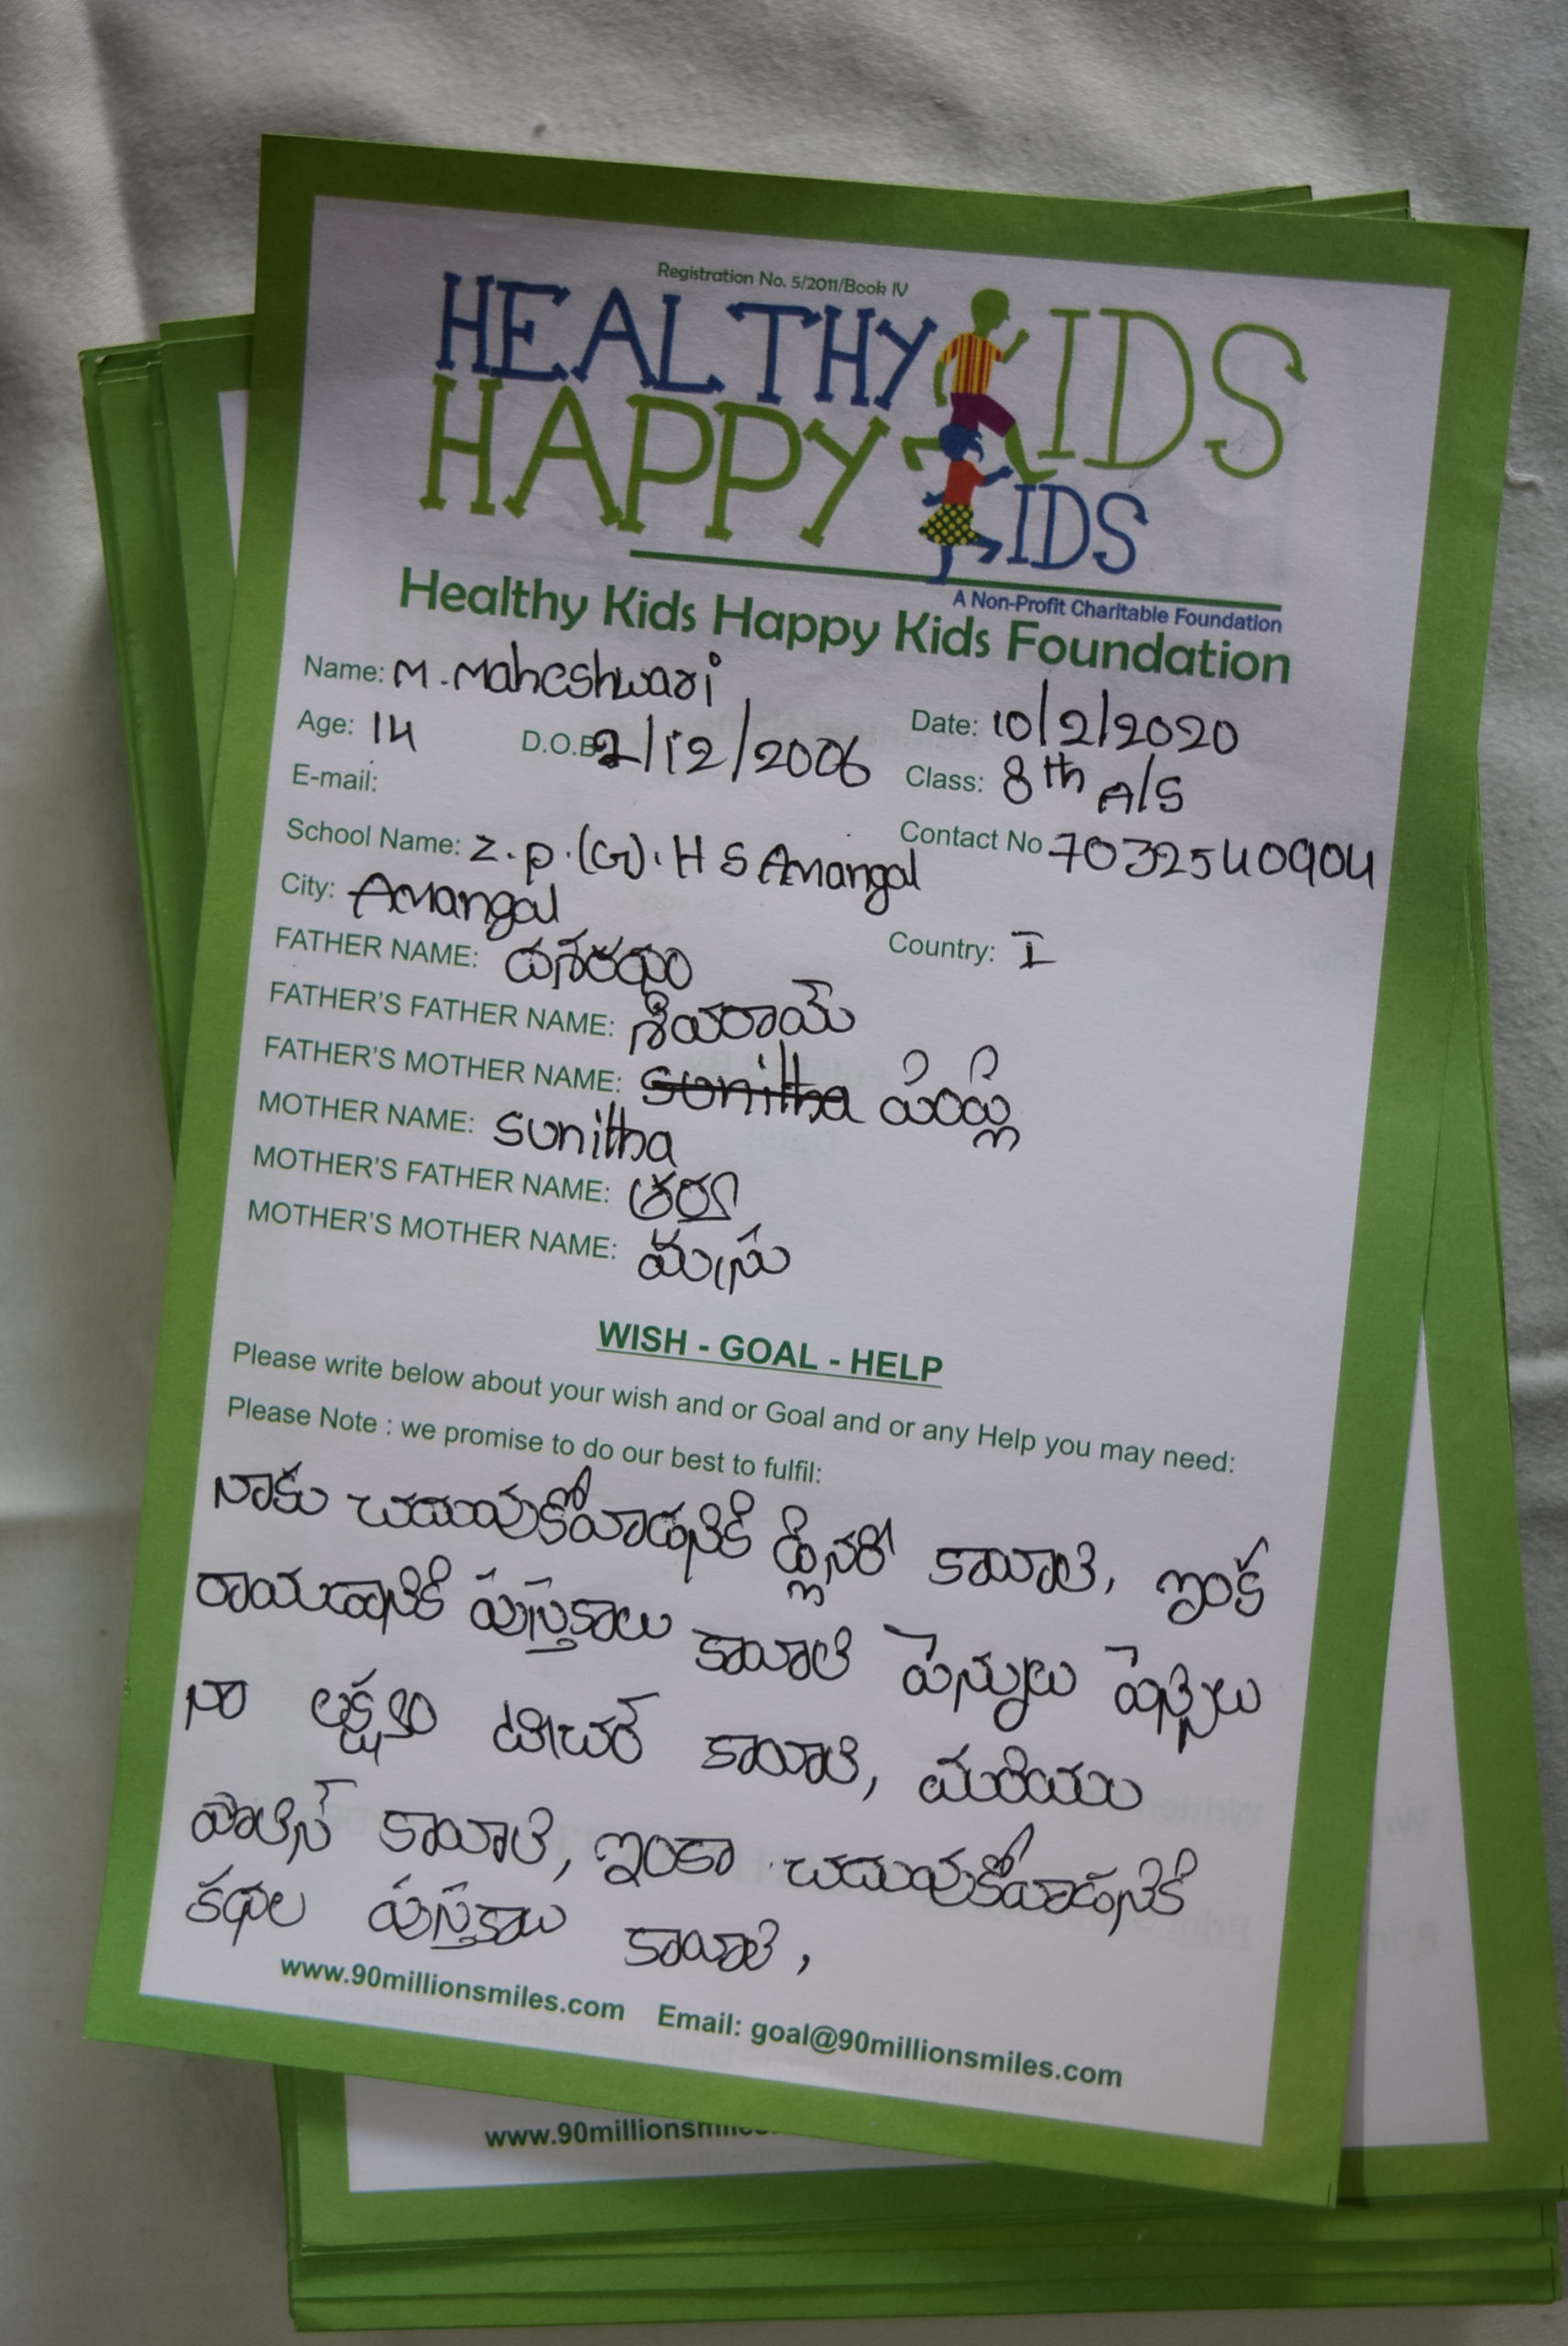 Registration No. 5/2011/Book IV
HEALTHY KIDS
HAPPY KIDS
A Non-Profit Charitable Foundation
Healthy Kids Happy Kids Foundation
Name: M. Maheshwari
Date: 10/2/2020
Age: 14 D.O.B 2/12/2006
Class: 8th A/S
E-mail:
School Name: Z.p.(G).H S Amangal
Contact No 7032540904
City: Amangal
Country: I
FATHER NAME: దశరథం
FATHER'S FATHER NAME: శివరామ్
FATHER'S MOTHER NAME: Sunitha
MOTHER NAME: sunitha
MOTHER'S FATHER NAME:
MOTHER'S MOTHER NAME:
WISH - GOAL - HELP
Please write below about your wish and or Goal and or any Help you may need:
Please Note : we promise to do our best to fulfil:
నాకు చదువుకోవాడనికి కావాలి, ఇంక
రాయడానికి పుస్తకాలు కావాలి పెన్నులు పెన్సిలు
నా లక్ష్యం టీచర్ కావాలి, మరియు
పొలిస్ కావాలి, ఇంకా చదువుకోవాడనికి
కథల పుస్తకాలు కావాలి,
www.90millionsmiles.com Email: goal@90millionsmiles.com
www.90millionsmiles.